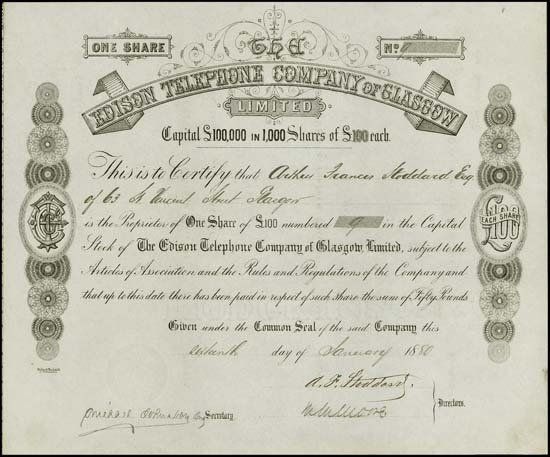 ONE SHARE
THE
No. 9
EDISON TELEPHONE COMPANY OF GLASGOW
LIMITED
Capital £100,000 IN 1,000 Shares of £100 each.
This is to Certify that Arthur Francis Stoddard Esq
of 63 St Vincent Street Glasgow
is the Proprietor of One Share of £100 numbered 9 in the Capital
Stock of The Edison Telephone Company of Glasgow, Limited, subject to the
Articles of Association and the Rules and Regulations of the Company and
that up to this date there has been paid in respect of such share the sum of Fifty Pounds
EACH SHARE
£100
Given under the Common Seal of the said Company this
day of January 1880
A. F. Stoddard
Secretary.
Directors.